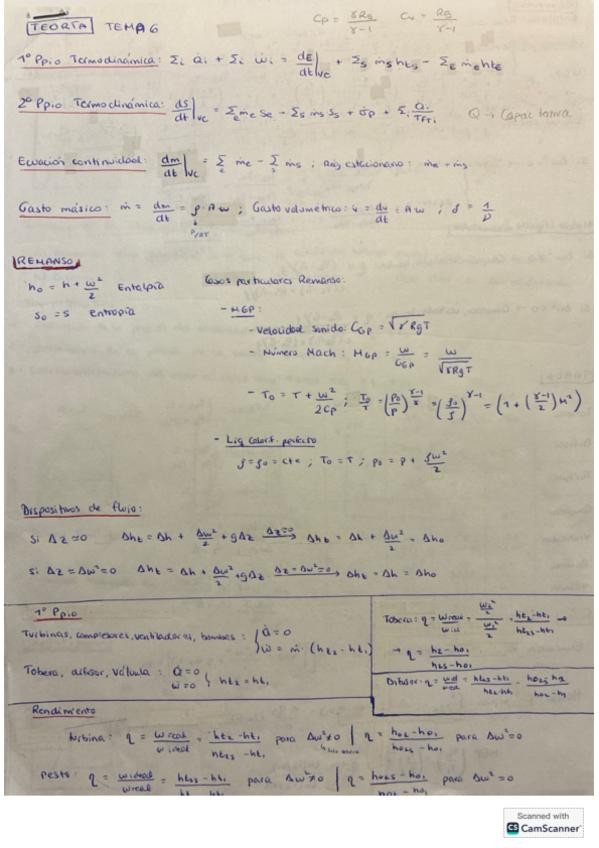 TEORÍA TEMA 6 Cp = γRg/γ-1 Cv = Rg/γ-1
1º Ppio Termodinámica: Σi Q̇i + Σi Ẇi = dE/dt|VC + Σs ṁs hts - ΣE ṁE htE
2º Ppio Termodinámica: dS/dt|VC = ΣE ṁe Se - Σs ṁs Ss + σ̇p + Σi Q̇i/TFTi Q → Capac
Ecuación continuidad: dm/dt|VC = Σe ṁe - Σs ṁs ; Reg estacionario: ṁe = ṁs
Gasto másico: ṁ = dm/dt = ρ A w ; Gasto volumétrico: = dv/dt = A w ; ρ = 1/v
P/RT
REMANSO
h0 = h + w²/2 Entalpía
s0 = s entropía
Casos particulares Remanso:
- MGP:
- Velocidad sonido: CGP = √γRgT
- Número Mach: MGP = w/CGP = w/√γRgT
- T0 = T + w²/2Cp ; T0/T = (P0/P)^γ-1/γ = (ρ0/ρ)^γ-1 = (1 + (γ-1/2) M²)
- Liq calorif. perfecto
ρ = ρ0 = cte ; T0 = T ; p0 = p + ρw²/2
Dispositivos de flujo:
Si Δz ≃ 0 Δht = Δh + Δw²/2 + gΔz —Δz=0→ Δht = Δh + Δw²/2 = Δh0
si Δz = Δw² = 0 Δht = Δh + Δw²/2 + gΔz —Δz=Δw²=0→ Δht = Δh = Δh0
1º Ppio
Turbinas, compresores, ventiladores, bombas: { Q̇ = 0
Ẇ = ṁ · (ht2 - ht1)
Tobera, difusor, válvula: Q̇ = 0
Ẇ = 0 } ht2 = ht1
Tobera: η = wreal/wid = w2²/2 / w2s²/2 = ht2 - ht1/ht2s - ht1 →
→ η = h2 - h01/h2s - h01
Difusor: η = wid/wreal = ht2s - ht1/ht2 - ht1 = h02s - h01/h02 - h01
Rendimiento
turbina: η = w real/w ideal = ht2 - ht1/ht2s - ht1 para Δw² ≠ 0 | η = h02 - h01/h02s - h01 para Δw² = 0
resto: η = w ideal/w real = ht2s - ht1/ht ht para Δw² ≠ 0 | η = h02s - h01/h02 - h01 para Δw² = 0
Scanned with
CS CamScanner